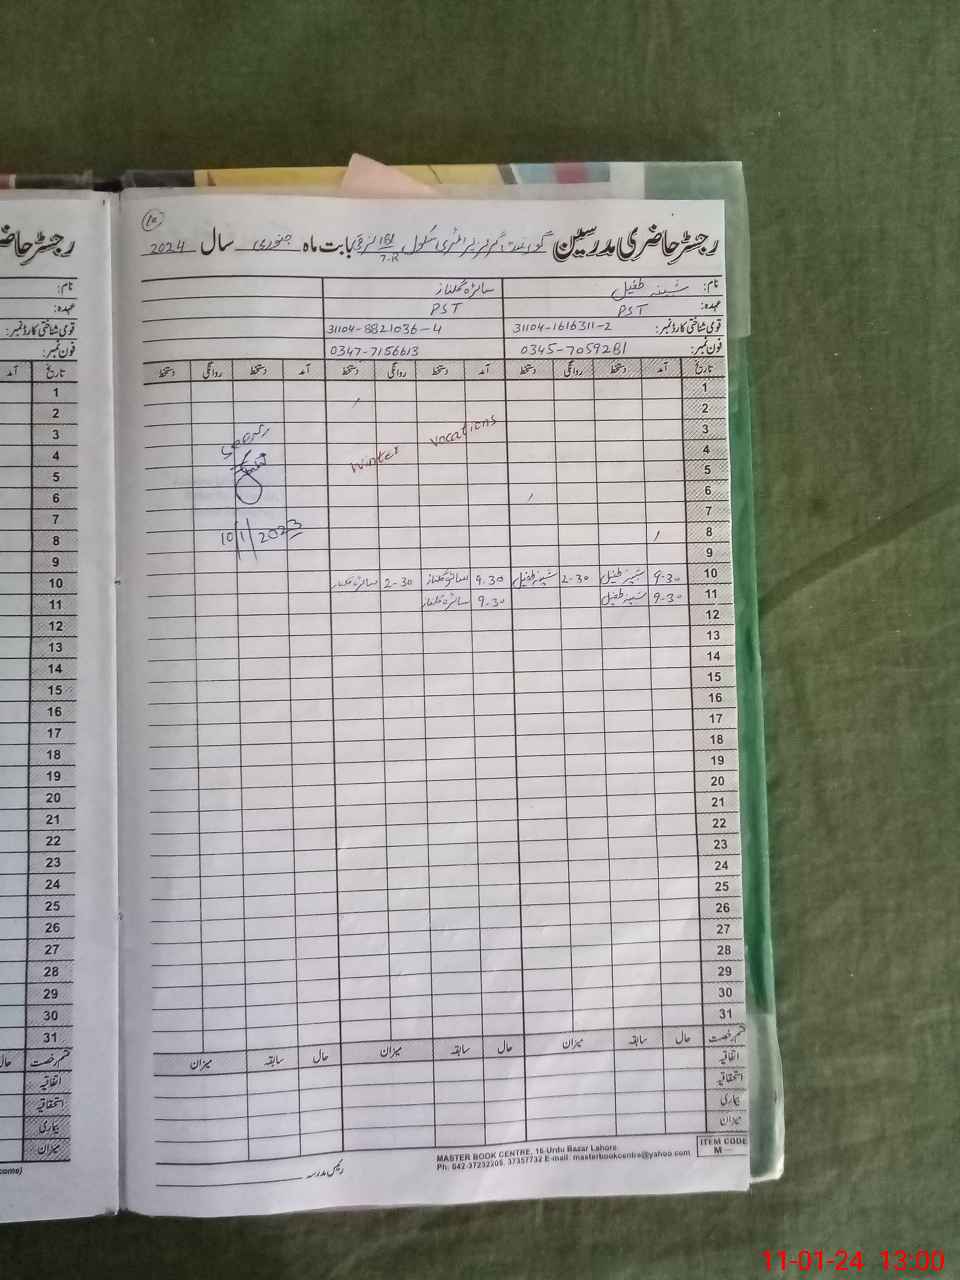 رجسٹر حاضری مدرسین گورنمنٹ گرلز پرائمری سکول 7-R بابت ماہ جنوری سال 2024
10
نام: شبینہ طفیل سائرہ گلناز
عہدہ: PST PST
قومی شناختی کارڈ نمبر: 31104-1616311-2 31104-8821036-4
فون نمبر: 0345-7059281 0347-7156613
تاریخ آمد دستخط روانگی دستخط آمد دستخط روانگی دستخط آمد دستخط روانگی دستخط
1
2
3
4
5
6
7
8
9
Winter vocations
10/1/2023
10 9-30 شبینہ طفیل 2-30 شبینہ طفیل 9.30 سائرہ گلناز 2-30 سائرہ گلناز
11 9-30 شبینہ طفیل 9-30 سائرہ گلناز
12
13
14
15
16
17
18
19
20
21
22
23
24
25
26
27
28
29
30
31
قسم رخصت حال سابقہ میزان حال سابقہ میزان حال سابقہ میزان
اتفاقیہ
استحقاقیہ
بیماری
میزان
رئیس مدرسہ
MASTER BOOK CENTRE, 16-Urdu Bazar Lahore
Ph: 042-37232205, 37357732 E-mail: masterbookcentre@yahoo.com
ITEM CODE
M
رجسٹر حاضری
نام:
عہدہ:
قومی شناختی کارڈ نمبر:
فون نمبر:
تاریخ آمد
1
2
3
4
5
6
7
8
9
10
11
12
13
14
15
16
17
18
19
20
21
22
23
24
25
26
27
28
29
30
31
قسم رخصت حال
اتفاقیہ
استحقاقیہ
بیماری
میزان
11-01-24 13:00